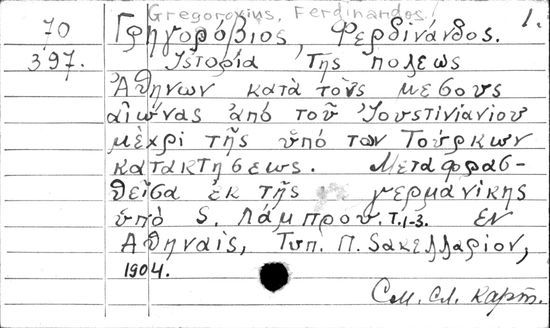 Gregorovius, Ferdinandos!
70 Γρηγορόβιος, Φερδινάνδος. 1.
397. Ἱστορία της πολεως
Ἀθηνων κατὰ τοὺς μεσους
αἰωνας ἀπό τοῦ Ἰουστινιανιου
μὲχρι τῆς ὑπό των Τούρκων
κατακτησεως. Μεταφρασ-
θεῖσα ἐκ τῆς γερμανικης
ὑπὸ S. Λάμπρου. T.1-3. Ἐν
Ἀθηναις, Τυπ. Π. Sακελλαριον,
1904.
См. сл. карт.